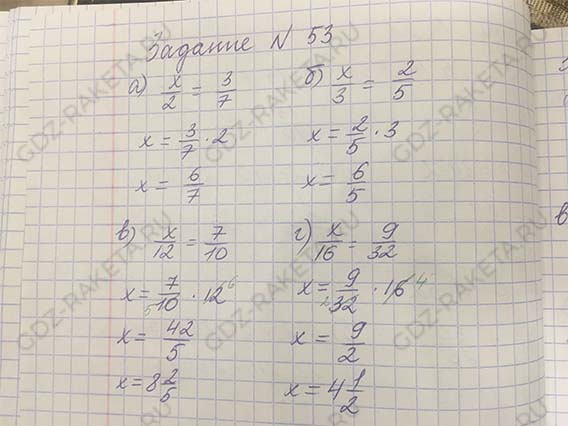 Задание N 53
а) x/2 = 3/7
x = 3/7 · 2
x = 6/7
б) x/3 = 2/5
x = 2/5 · 3
x = 6/5
в) x/12 = 7/10
x = 7/10 5 · 12 6
x = 42/5
x = 8 2/5
г) x/16 = 9/32
x = 9/32 2 · 16
x = 9/2
x = 4 1/2
GDZ-RAKETA.RU